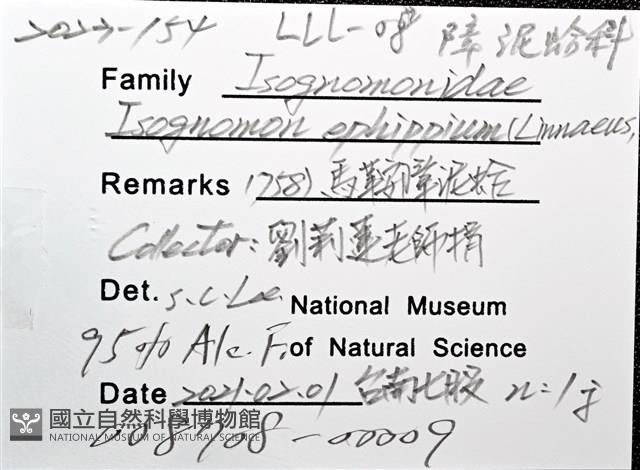 2022-154 LLL-08 障泥蛤科
Family Isognomonidae
Isognomon ephippium (Linnaeus,
Remarks 1758) 馬鞍障泥蛤
Collector: 劉莉蓮老師捐
Det. S.C. Lee National Museum
95% Alc. F. of Natural Science
Date 2021.02.01 台南七股 n=1
國立自然科學博物館
NATIONAL MUSEUM OF NATURAL SCIENCE
008708-00009